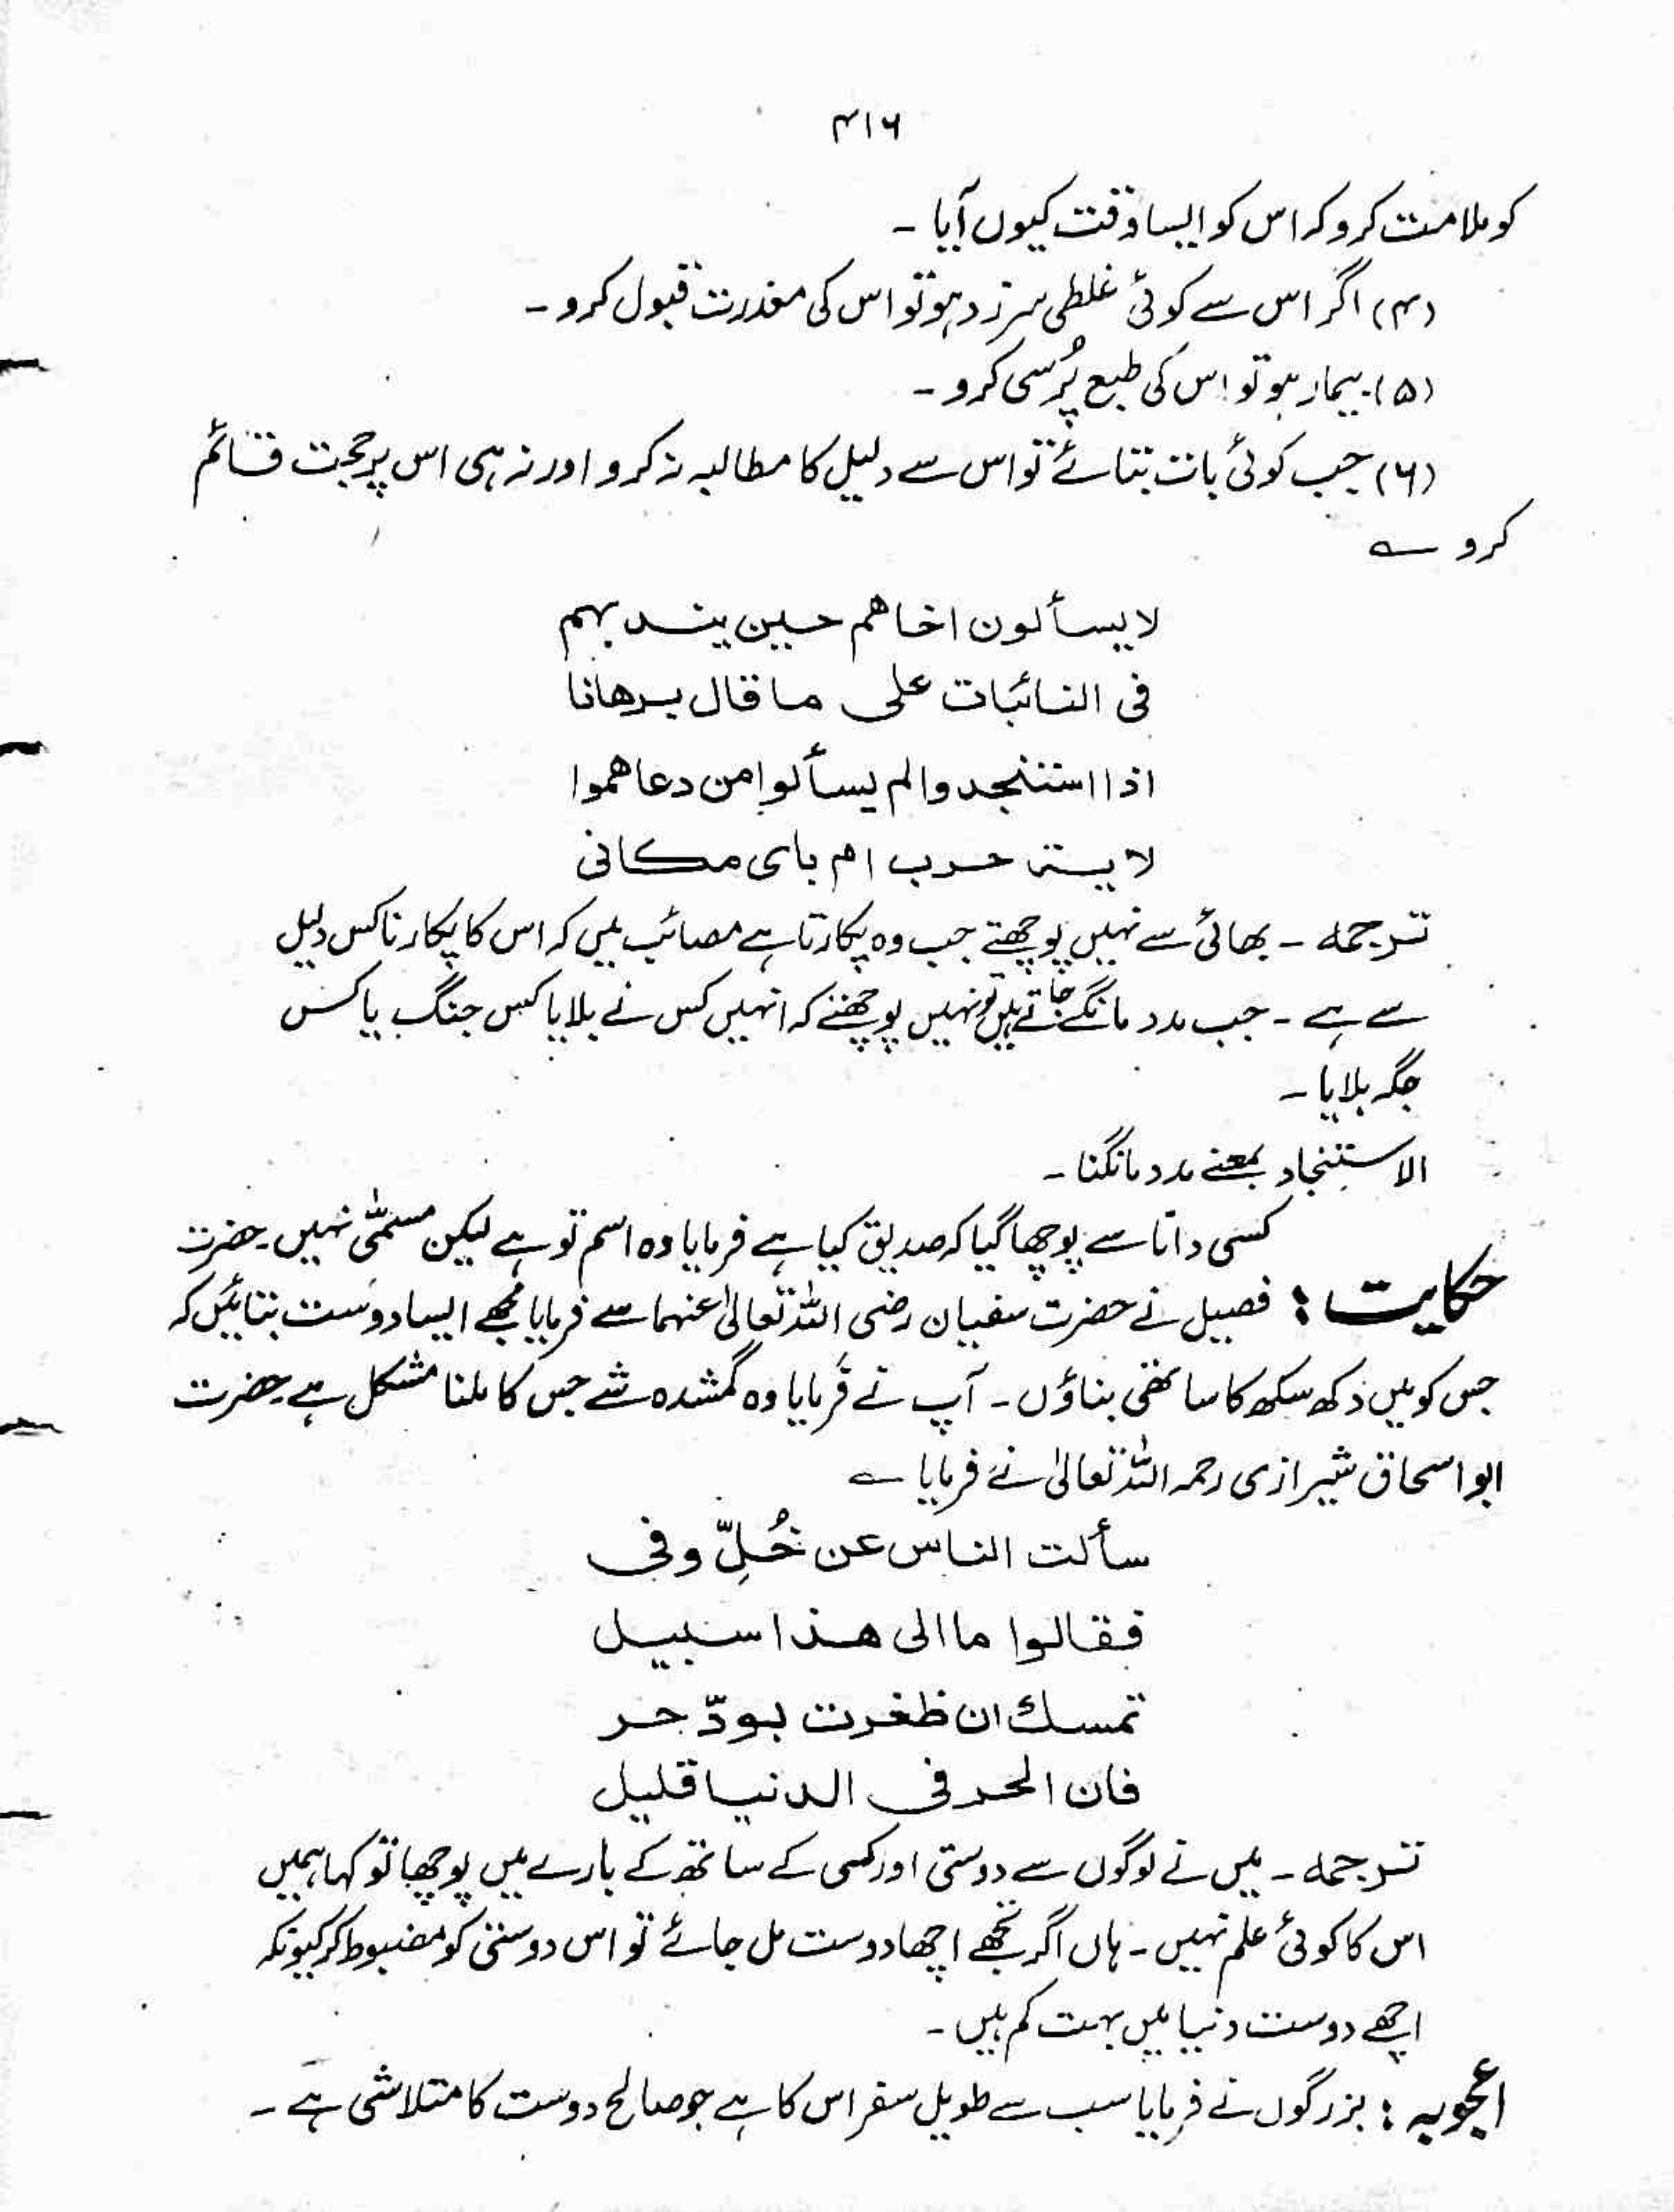 ۴۱۶
کو ملامت کرو کہ اس کو ایسا وقت کیوں آیا ۔
(۴) اگر اس سے کوئی غلطی سرزد ہو تو اس کی معذرت قبول کرو ۔
(۵) بیمار ہو تو اس کی طبع پُرسی کرو ۔
(۶) جب کوئی بات بتائے تو اس سے دلیل کا مطالبہ نہ کرو اور نہ ہی اس پر حجت قائم
کرو ؎
لا يسألون اخاهم حين يندبهم
فى النائبات على ما قال برهانا
اذا استنجدوا لم يسألوا من دعاهموا
لاية حرب ام باى مكانى
ترجمہ ۔ بھائی سے نہیں پوچھتے جب وہ پکارتا ہے مصائب میں کہ اس کا پکارنا کس دلیل
سے ہے ۔ جب مدد مانگے جاتے ہیں تو نہیں پوچھتے کہ انہیں کس نے بلایا کس جنگ یا کس
جگہ بلایا ۔
الاستنجاد بمعنے مدد مانگنا ۔
کسی دانا سے پوچھا گیا کہ صدیق کیا ہے فرمایا وہ اسم تو ہے لیکن مسمّٰی نہیں ۔ حضرت
حکایت : فضیل نے حضرت سفیان رضی اللہ تعالیٰ عنہما سے فرمایا مجھے ایسا دوست بتائیں کہ
جس کو میں دکھ سکھ کا ساتھی بناؤں ۔ آپ نے فرمایا وہ گمشدہ شے جس کا ملنا مشکل ہے حضرت
ابو اسحاق شیرازی رحمہ اللہ تعالیٰ نے فرمایا ؎
سألت الناس عن خُلِّ وفى
فقالوا ما الى هذا سبيل
تمسك ان ظفرت بودّ حر
فان الحر فى الدنيا قليل
ترجمہ ۔ میں نے لوگوں سے دوستی اور کسی کے ساتھ کے بارے میں پوچھا تو کہا ہمیں
اس کا کوئی علم نہیں ۔ ہاں اگر تجھے اچھا دوست مل جائے تو اس دوستی کو مضبوط کر کیونکہ
اچھے دوست دنیا میں بہت کم ہیں ۔
اعجوبہ : بزرگوں نے فرمایا سب سے طویل سفر اس کا ہے جو صالح دوست کا متلاشی ہے ۔